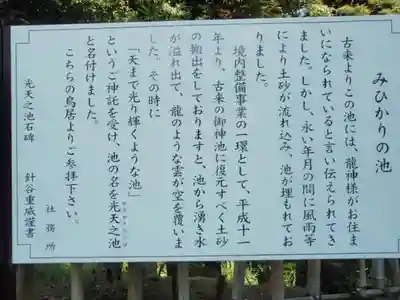 みひかりの池
古来よりこの池には、龍神様がお住ま
いになられていると言い伝えられてき
ました。しかし、永い年月の間に風雨等
により土砂が流れ込み、池が埋もれてお
りました。
境内整備事業の一環として、平成十一
年より、古来の御神池に復元すべく土砂
の搬出をしておりますと、池から湧き水
が溢れ出て、龍のような雲が空を覆いま
した。その時に
「天まで光り輝くような池」
というご神託を受け、池の名を光天之池
と名付けました。
こちらの鳥居よりご参拝下さい。
社務所
光天之池石碑 針谷重威謹書